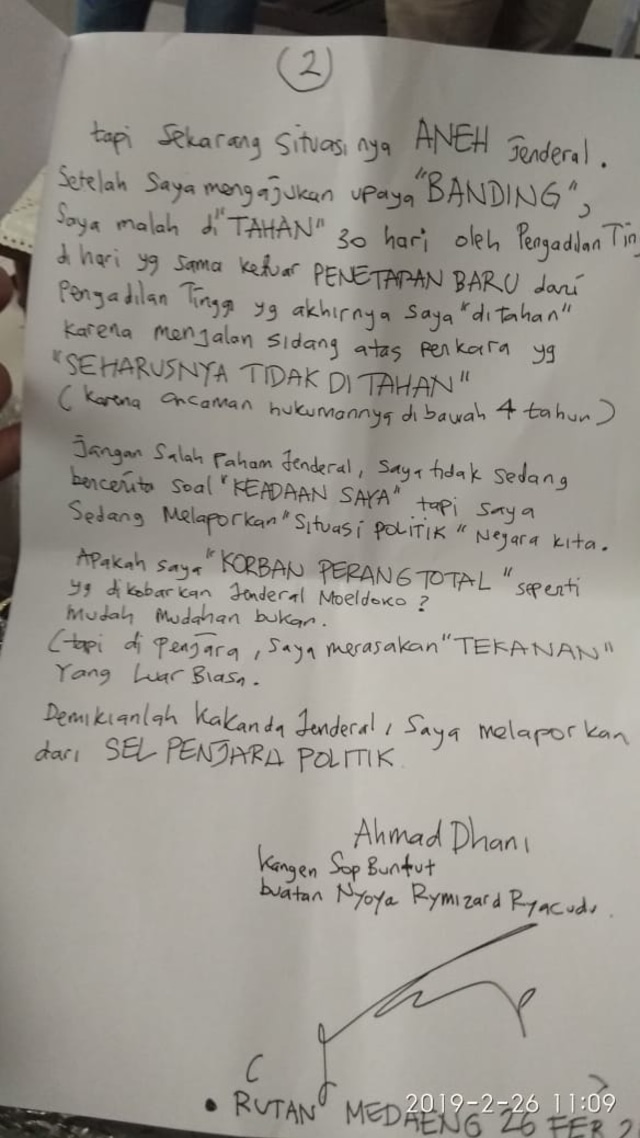 (2)
tapi Sekarang Situasi nya ANEH Jenderal.
Setelah Saya mengajukan upaya "BANDING",
Saya malah di "TAHAN" 30 hari oleh Pengadilan Ting
di hari yg sama keluar PENETAPAN BARU dari
Pengadilan Tinggi yg akhirnya saya "ditahan"
karena menjalan sidang atas perkara yg
"SEHARUSNYA TIDAK DI TAHAN"
(karena ancaman hukumannya dibawah 4 tahun)
Jangan Salah Paham Jenderal, saya tidak sedang
bercerita soal "KEADAAN SAYA" tapi saya
Sedang Melaporkan "Situasi POLITIK" Negara kita.
Apakah saya "KORBAN PERANG TOTAL" seperti
yg dikobarkan Jenderal Moeldoko?
Mudah Mudahan bukan.
(tapi di penjara, saya merasakan "TEKANAN"
Yang Luar Biasa.
Demikianlah Kakanda Jenderal, Saya melaporkan
dari SEL PENJARA POLITIK.
Ahmad Dhani
Kangen Sop Buntut
buatan Nyoya Rymizard Ryacudu.
( )
• RUTAN MEDAENG 26 FEB 2
2019-2-26 11:09